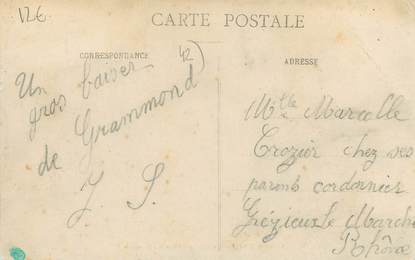 126
CARTE POSTALE
CORRESPONDANCE
42)
ADRESSE
Un
gros baiser
de Grammond
J. S.
Mlle Marcelle
Crozier chez ses
parents cordonnier
Grézieux le Marché
Rhône